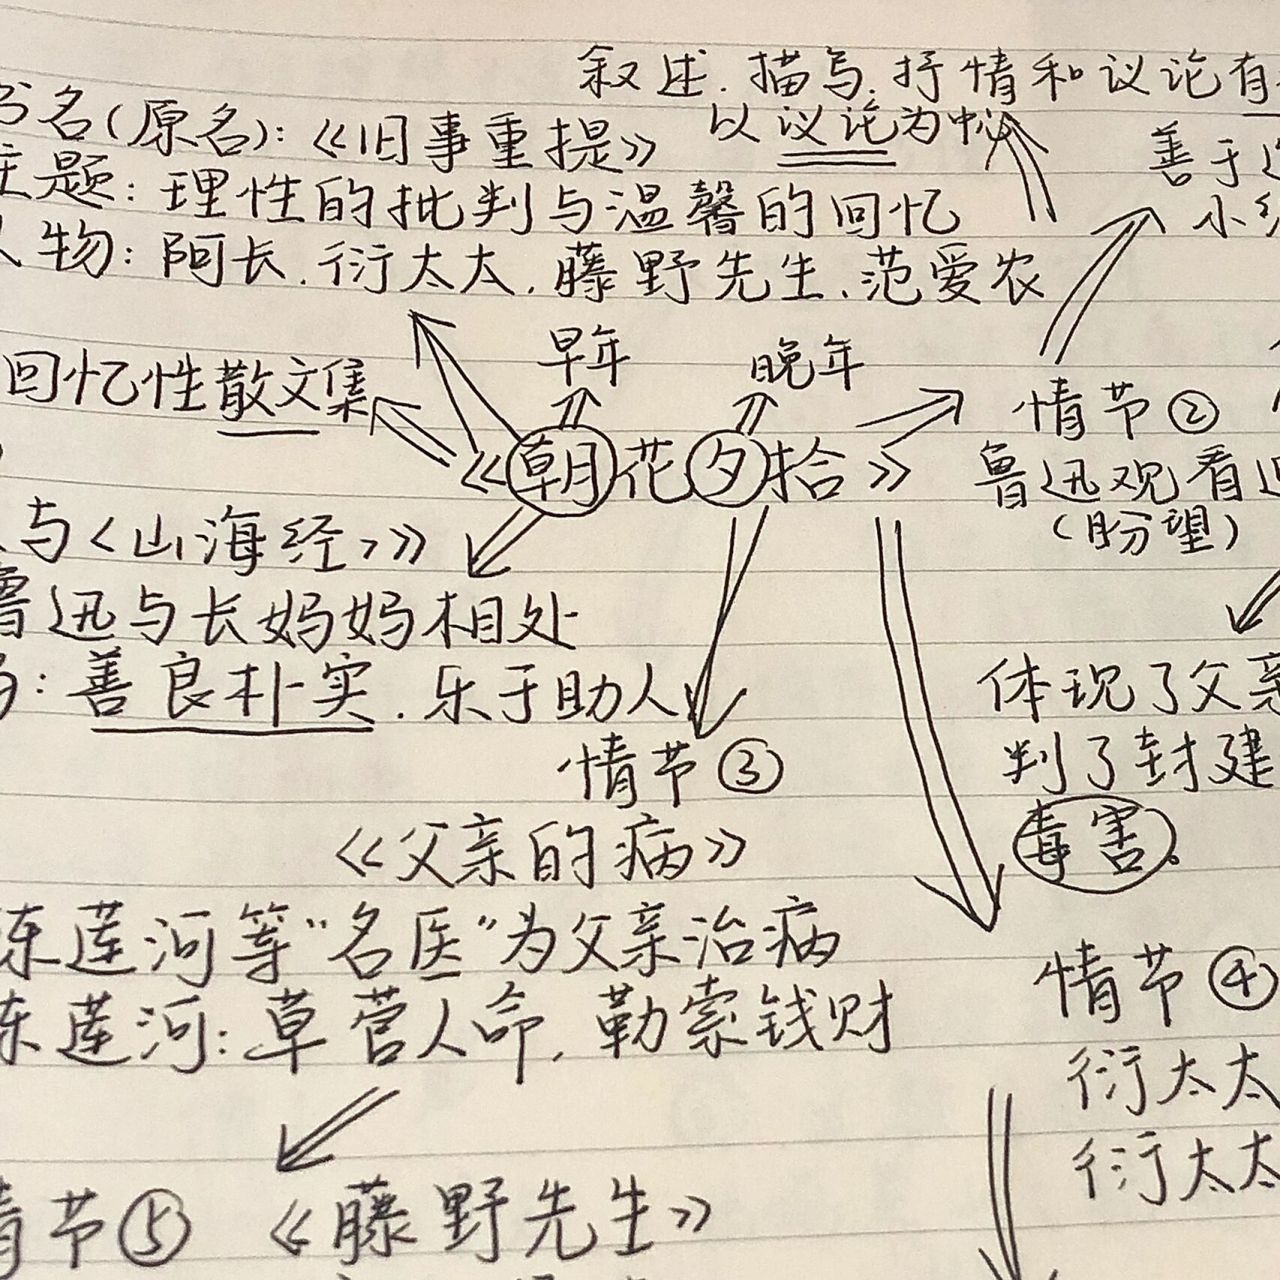 叙述.描写.抒情和议论有
以议论为中心
书名(原名):《旧事重提》
善于
主题:理性的批判与温馨的回忆
小
人物:阿长.衍太太.藤野先生.范爱农
早年
晚年
回忆性散文集
情节②
《朝花夕拾》
鲁迅观看
(盼望)
与《山海经》
鲁迅与长妈妈相处
体现了父亲
:善良朴实.乐于助人
判了封建
情节③
毒害。
《父亲的病》
陈莲河等"名医"为父亲治病
情节④
陈莲河:草菅人命.勒索钱财
衍太太
衍太太
情节⑤《藤野先生》